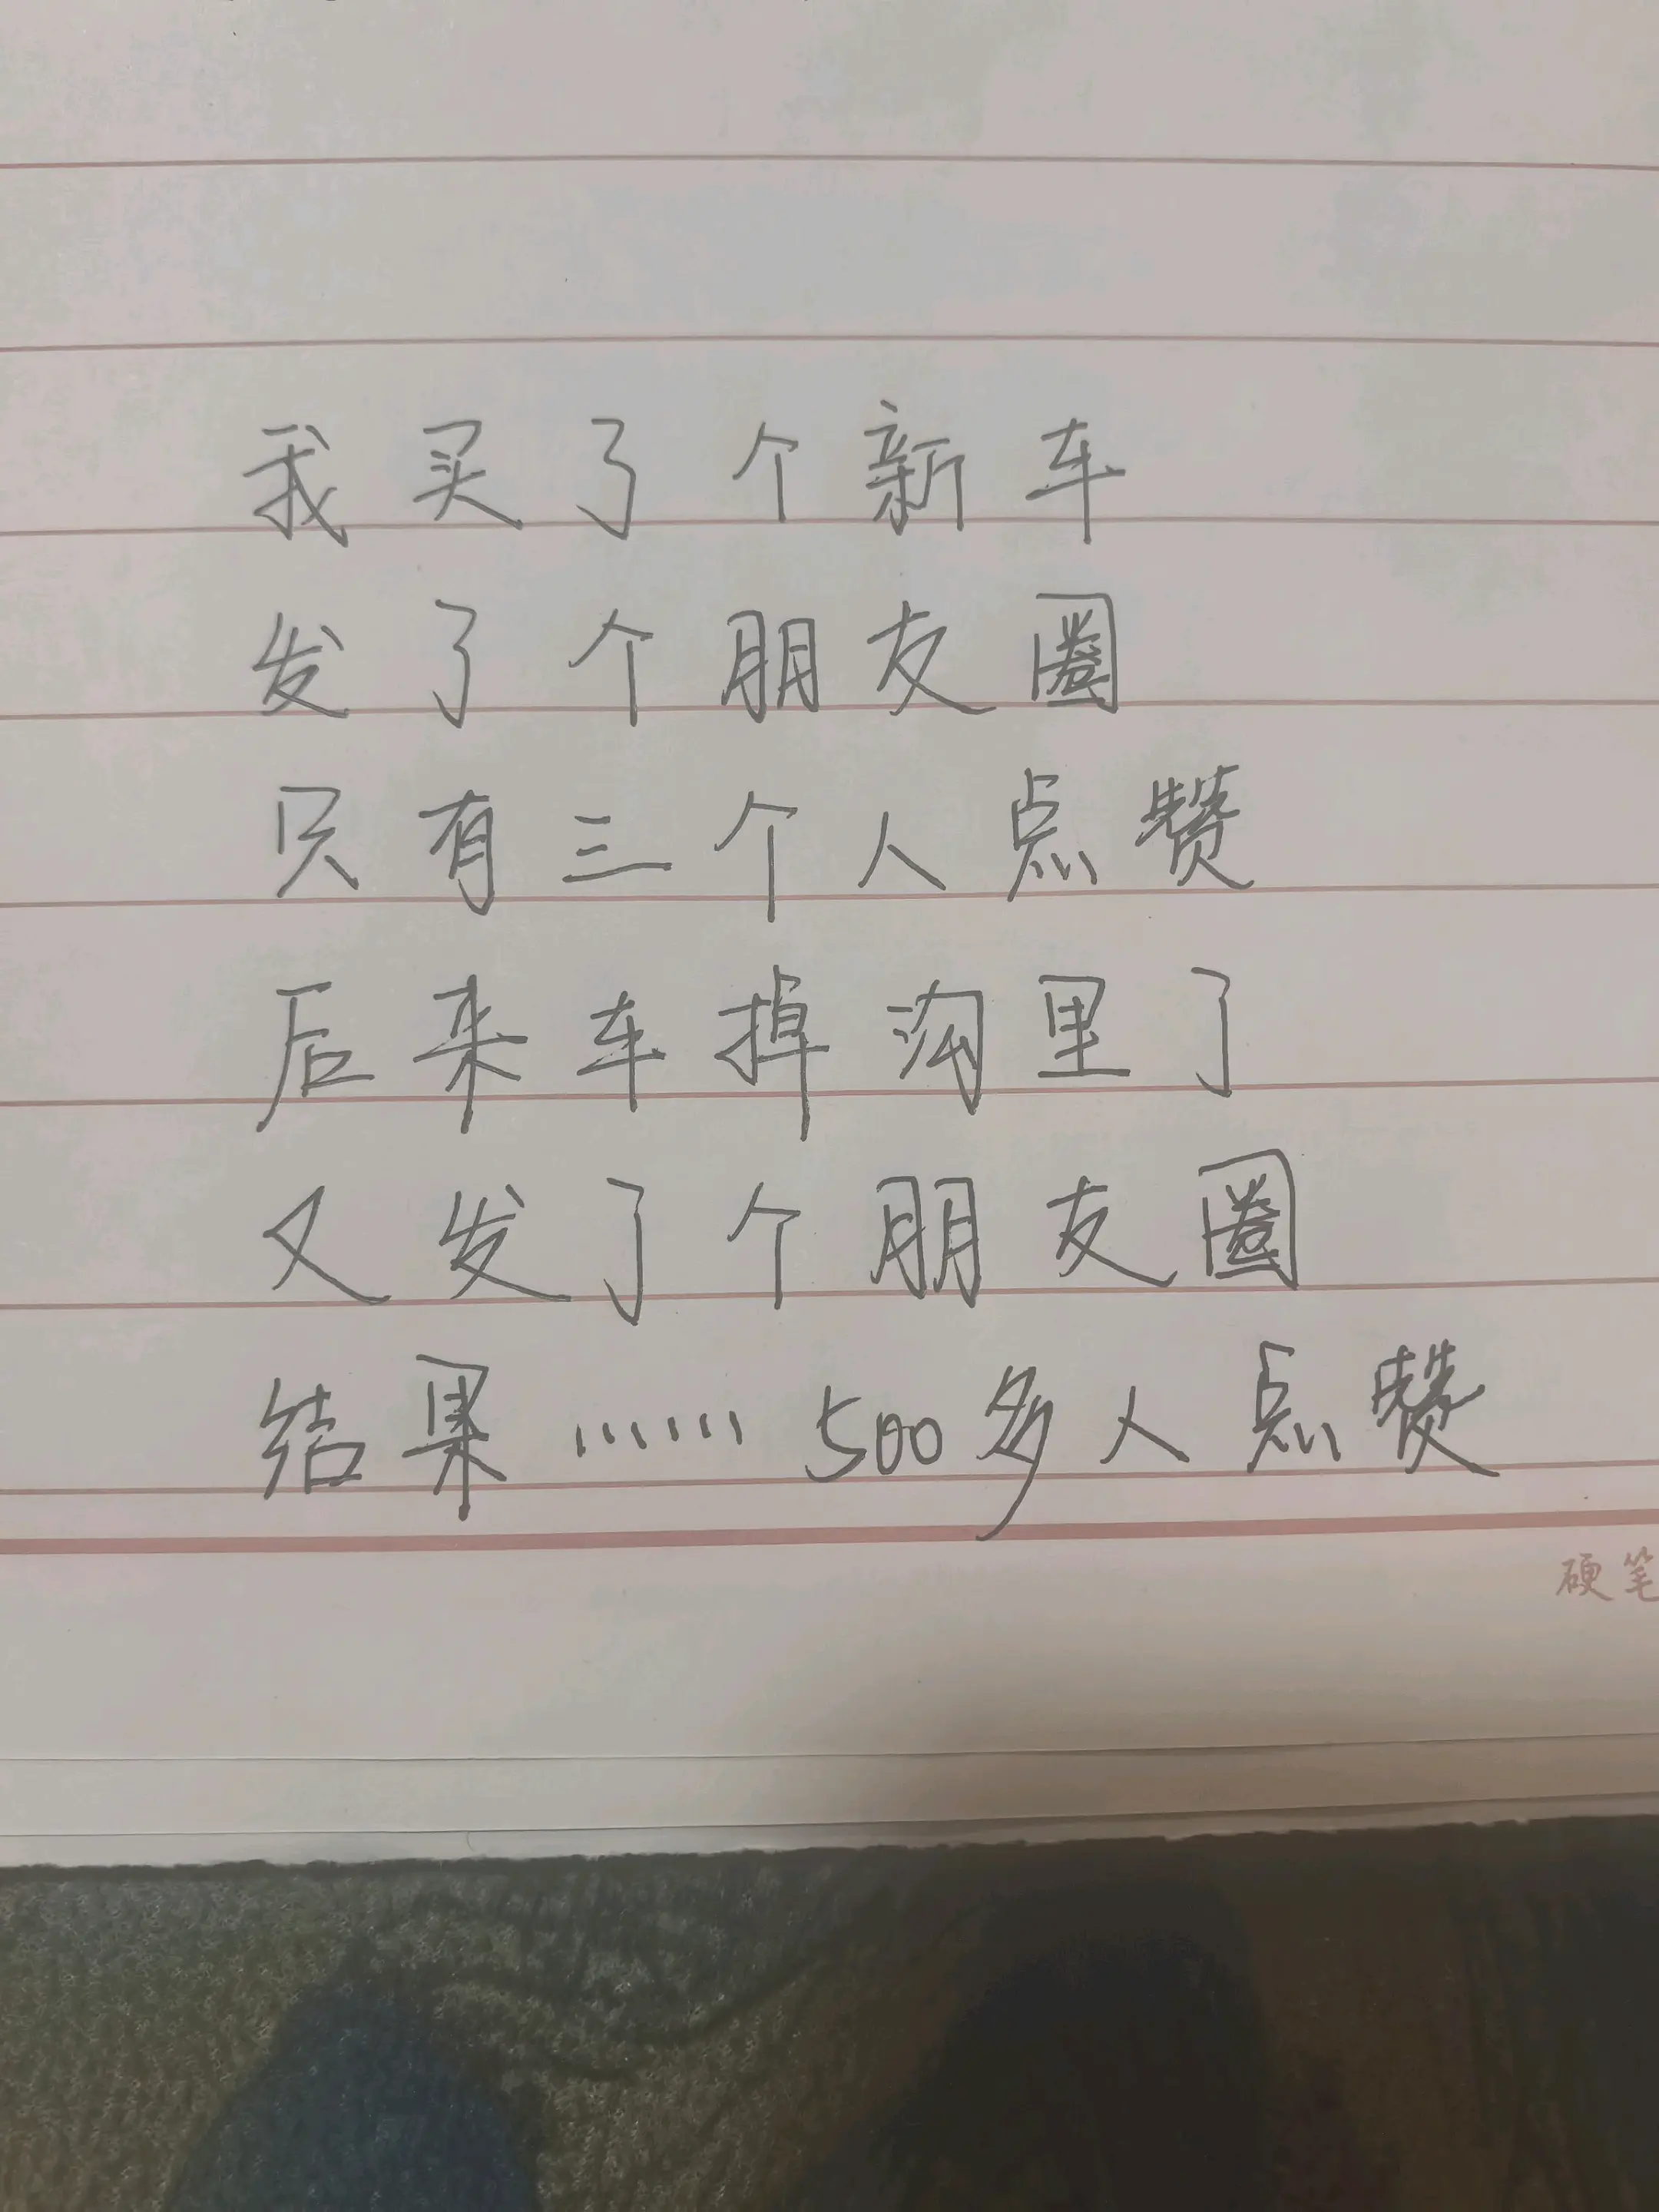 我买了个新车
发了个朋友圈
只有三个人点赞
后来车掉沟里了
又发了个朋友圈
结果……500多人点赞
硬笔